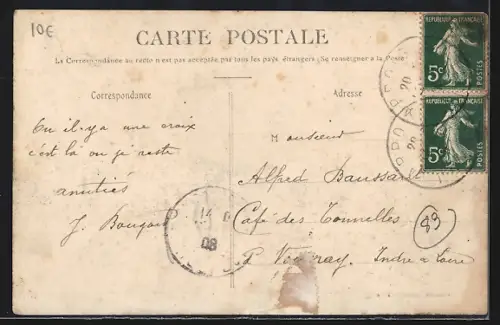 10€
CARTE POSTALE
La Correspondance au recto n'est pas acceptée par tous les pays étrangers (Se renseigner à la Poste)
Correspondance
Adresse
RÉPUBLIQUE FRANÇAISE
5c
POSTES
RÉPUBLIQUE FRANÇAISE
5c
POSTES
20
20
Ou il-y-a une croix
c'est là ou je reste
amitiés
J.
Monsieur
Alfred Baussant
Café des Tonnelles
Vouvray. Indre & Loire
89
14
08